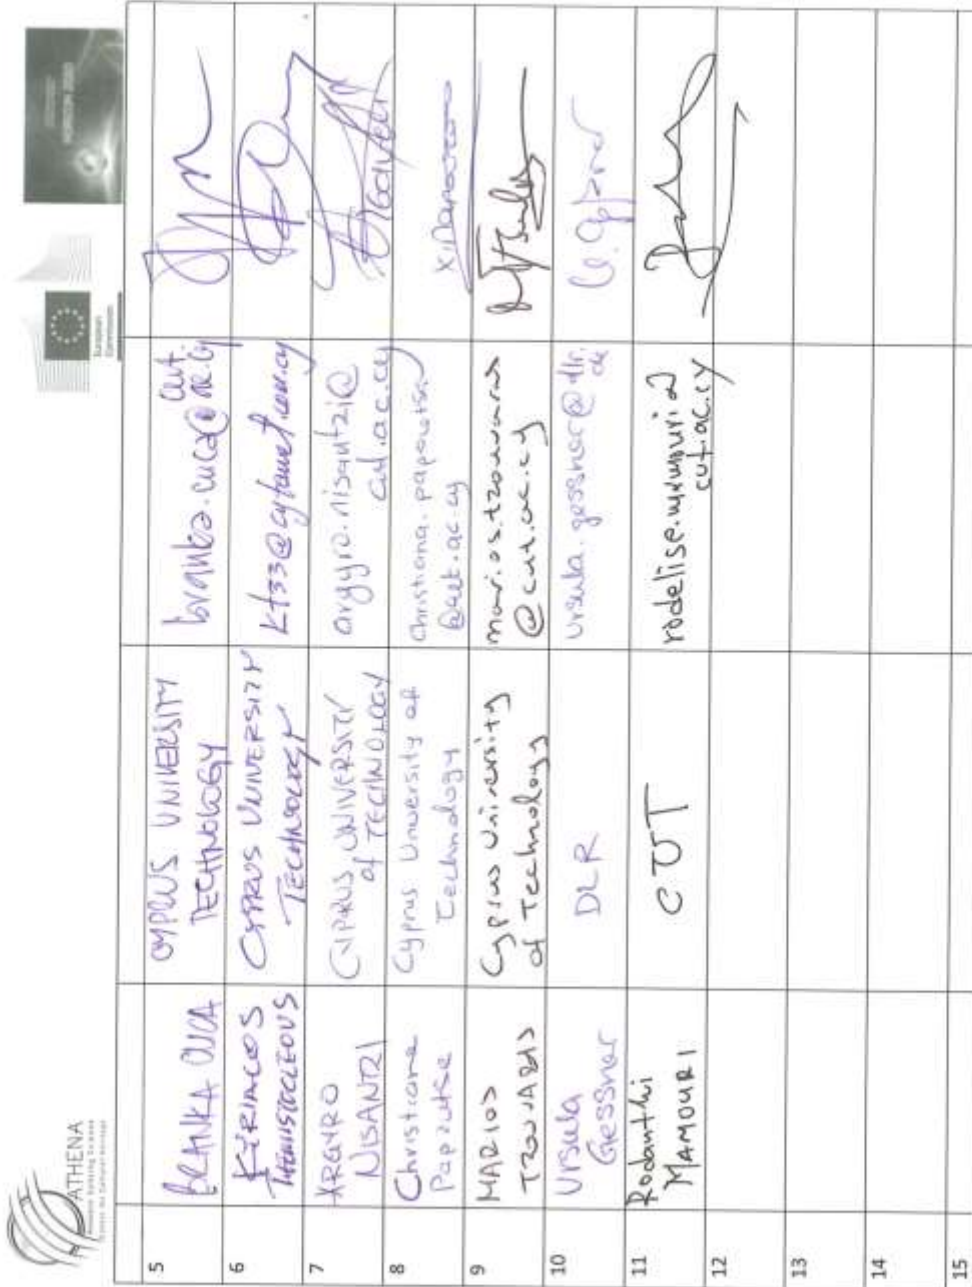 ATHENA
European
Commission
HORIZON 2020
5
BRANKA CUCA
CYPRUS UNIVERSITY
TECHNOLOGY
branka.cuca@cut.
ac.cy
6
KYRIACOS
THEMISTOCLEOUS
CYPRUS UNIVERSITY
TECHNOLOGY
kt33@cytanet.com.cy
7
ARGYRO
NISANTZI
CYPRUS UNIVERSITY
of TECHNOLOGY
argyro.nisantzi@
cut.ac.cy
8
Christiana
Papoutsa
Cyprus University of
Technology
christiana.papoutsa
@cut.ac.cy
9
MARIOS
TZOUVARAS
Cyprus University
of Technology
marios.tzouvaras
@cut.ac.cy
10
Ursula
Gessner
DLR
ursula.gessner@dlr.
de
11
Rodanthi
MAMOURI
CUT
cut.ac.cy
12
13
14
15